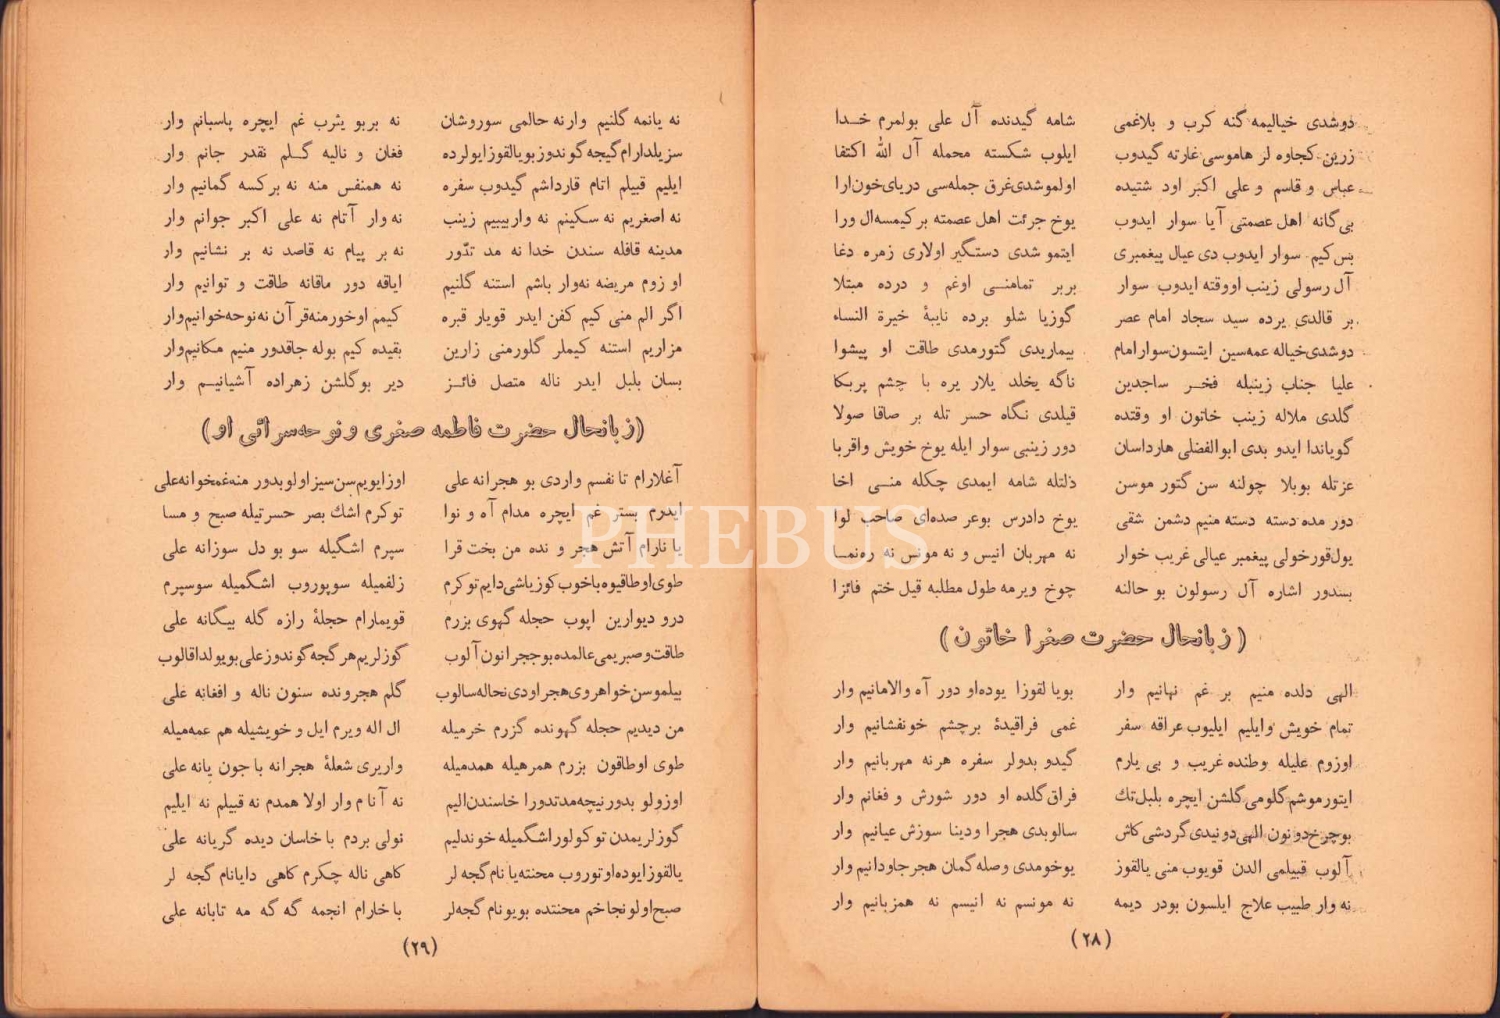 دوشدی خیالیمه گنه کرب و بلاغمی شامه گیدنده آل علی بولمرم خدا
زرین کجاوه لر هاموسی غارته گیدوب ایلوب شکسته محمله آل الله اکتفا
عباس و قاسم و علی اکبر اود شتیده اولموشدی غرق جمله‌سی دریای خون‌ارا
بی‌گانه اهل عصمتی آیا سوار ایدوب یوخ جرئت اهل عصمته بر کیمسه‌ال ورا
بس کیم سوار ایدوب دی عیال پیغمبری ایتمو شدی دستگیر اولاری زمره دغا
آل رسولی زینب اووقته ایدوب سوار بربر تمامنی اوغم و درده مبتلا
بر قالدی یرده سید سجاد امام عصر گوزیا شلو برده نایبۀ خیرة النساء
دوشدی‌خیاله عمه‌سین ایتسون‌سوار‌امام بیماریدی گتورمدی طاقت او پیشوا
علیا جناب زینبله فخر ساجدین ناگه یخلد یلار یره با چشم پربکا
گلدی ملاله زینب خاتون او وقتده قیلدی نگاه حسر تله بر صاقا صولا
گویاندا ایدو بدی ابوالفضلی هارداسان دور زینبی سوار ایله یوخ خویش واقربا
عزتله بوبلا چولنه سن گتور موسن ذلتله شامه ایمدی چکله منی اخا
دور مده دسته دسته منیم دشمن شقی یوخ دادرس بوعر صده‌ای صاحب لوا
یول‌قورخولی پیغمبر عیالی غریب خوار نه مهربان انیس و نه مونس نه ره‌نما
بسدور اشاره آل رسولون بو حالنه چوخ ویرمه طول مطلبه قیل ختم فائزا
( زبانحال حضرت صغرا خاتون )
الهی دلده منیم بر غم نهانیم وار بویا لقوزا یوده‌او دور آه والامانیم وار
تمام خویش وایلیم ایلیوب عراقه سفر غمی فراقیدۀ برچشم خونفشانیم وار
اوزوم علیله وطنده غریب و بی یارم گیدو بدولر سفره هرنه مهربانیم وار
ایتورموشم گلومی گلشن ایچره بلبل‌تك فراق گلده او دور شورش و فغانم وار
بوچرخ‌دونون الهی‌دونیدی‌گردشی‌کاش سالوبدی هجرا ودینا سوزش عیانیم وار
آلوب قبیلمی الدن قویوب منی یالقوز یوخومدی وصله گمان هجرجاودانیم وار
نه وار طبیب علاج ایلسون بودر دیمه نه مونسم نه انیسم نه همزبانیم وار
(۲۸)
نه یانمه گلنیم وارنه حالمی سوروشان نه بربو یثرب غم ایچره پاسبانم وار
سزیلدارام گیجه گوندوزبویالقوزایولرده فغان و نالیه گلم نقدر جانم وار
ایلیم قبیلم اتام قارداشم گیدوب سفره نه همنفس منه نه برکسه گمانیم وار
نه اصغریم نه سکینم نه واربیبیم زینب نه وار آتام نه علی اکبر جوانم وار
مدینه قافله سندن خدا نه مد تدّور نه بر پیام نه قاصد نه بر نشانیم وار
او زوم مریضه نه‌وار باشم استنه گلنیم ایاقه دور ماقانه طاقت و توانیم وار
اگر الم منی کیم کفن ایدر قویار قبره کیمم اوخورمنه‌قرآن نه‌نوحه‌خوانیم‌وار
مزاریم استنه کیملر گلورمنی زارین بقیده کیم بوله جاقدور منیم مکانیم‌وار
بسان بلبل ایدر ناله متصل فائز دیر بوگلشن زهراده آشیانیم وار
(زبانحال حضرت فاطمه صغری و نوحه‌سرائی او)
آغلارام تا نفسم واردی بو هجرانه علی اوزایویم‌سن‌سیزاولوبدور منه‌غمخوانه‌علی
ایدرم بستر غم ایچره مدام آه و نوا توکرم اشك بصر حسرتیله صبح و مسا
یا نارام آتش هجر و نده من بخت قرا سپرم اشگیله سو بو دل سوزانه علی
طوی‌اوطاقیوه‌باخوب‌کوزیاشی‌دایم‌توکرم زلفمیله سوپوروب اشگمیله سوسپرم
درو دیوارین اپوب حجله گهوی بزرم قویمارام حجلۀ رازه گله بیگانه علی
طاقت‌و‌صبریمی‌عالمده‌بوهجرانون‌آلوب گوزلریم‌هر‌گجه‌گوندوز‌علی‌بویولدا‌قالوب
بیلموسن‌خواهروی‌هجراودی‌نحاله‌سالوب گلم هجرونده سنون ناله و افغانه علی
من دیدیم حجله گهونده گزرم خرمیله ال اله ویرم ایل و خویشیله هم عمه‌میله
طوی اوطاقون بزرم همرهیله همدمیله واریری شعلۀ هجرانه با جون یانه علی
اوزولو بدورنیچه‌مدتدورا خاسندن‌الیم نه آنام وار اولا همدم نه قبیلم نه ایلیم
گوزلریمدن توکولور اشگمیله خوندلیم نولی بردم باخاسان دیده گریانه علی
یالقوزایوده‌اوتوروب محنته‌یا نام گجه لر کاهی ناله چکرم کاهی دایانام گجه لر
صبح‌اولونجاخم محنتده بویونام گجه‌لر باخارام انجمه گه گه مه تابانه علی
(۲۹)
PHEBUS